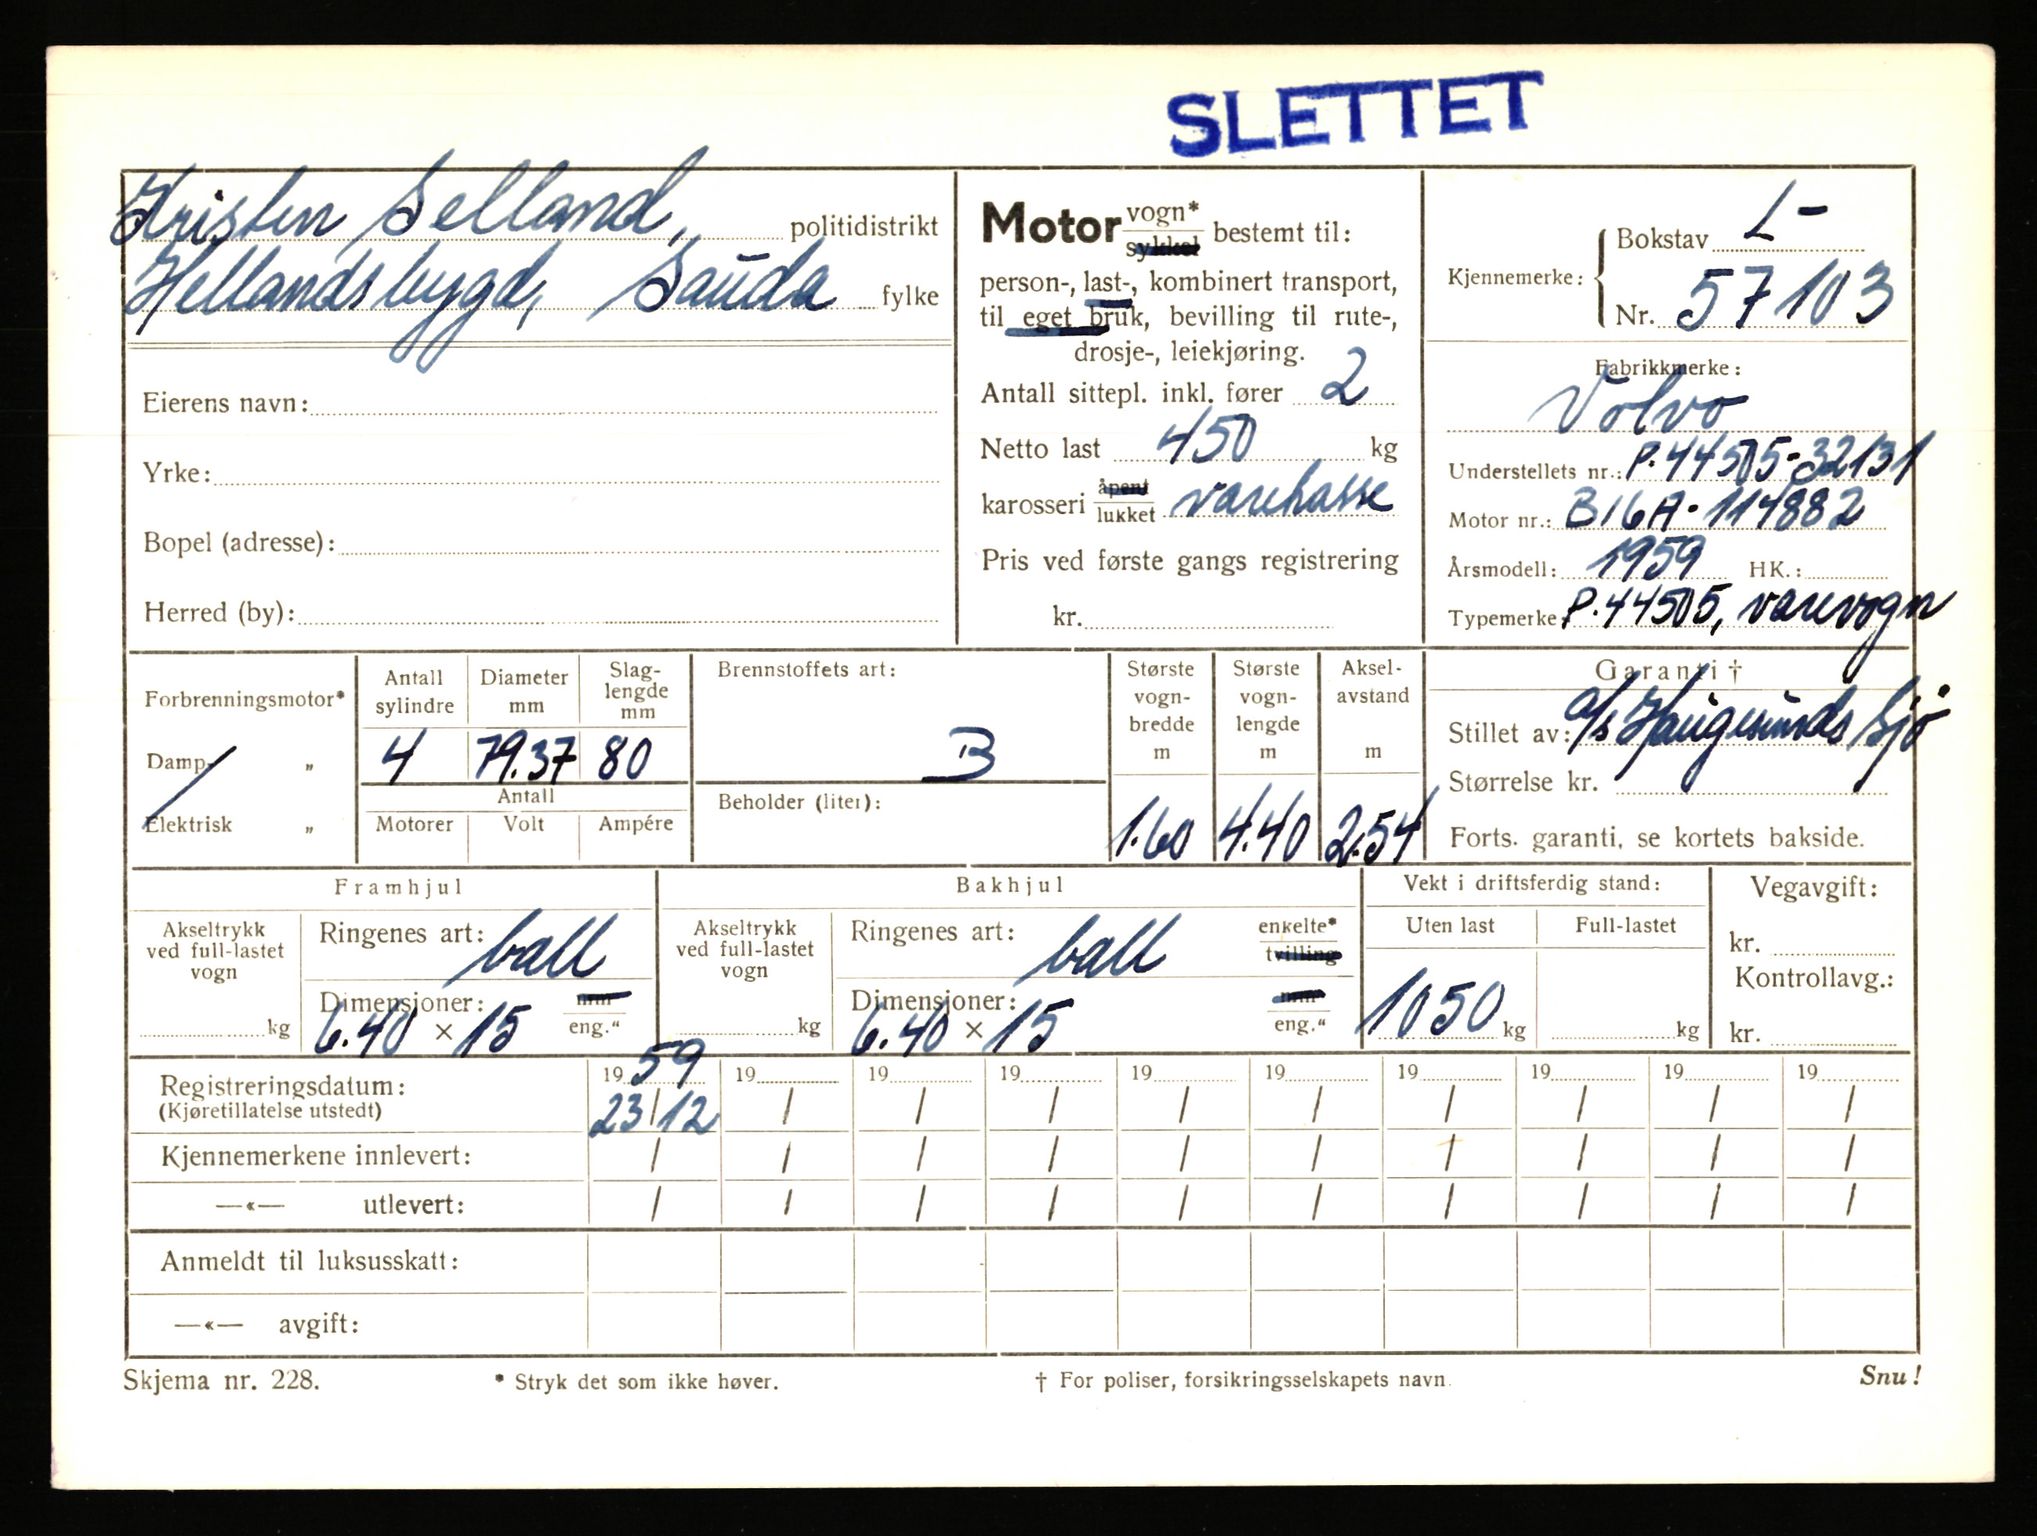 SLETTET
Kristen Selland, politidistrikt
Hellandsbygd, Sauda fylke
Eierens navn:
Yrke:
Bopel (adresse):
Herred (by):
Motor vogn* sykkel bestemt til:
person-, last-, kombinert transport,
til eget bruk, bevilling til rute-,
drosje-, leiekjøring.
Antall sittepl. inkl. fører 2
Netto last 450 kg
karosseri åpent lukket varekasse
Pris ved første gangs registrering
kr.
Kjennemerke: Bokstav L-
Nr. 57103
Fabrikkmerke:
Volvo
Understellets nr.: P.44505-32131
Motor nr.: B16A-114882
Årsmodell: 1959 HK.:
Typemerke P.44505, varevogn
Forbrenningsmotor*
Damp- „
Elektrisk „
Antall sylindre Diameter mm Slag-lengde mm
4 79.37 80
Antall
Motorer Volt Ampére
Brennstoffets art:
B
Beholder (liter):
Største vogn-bredde m Største vogn-lengde m Aksel-avstand m
1.60 4.40 2.54
Garanti †
Stillet av: A/S Haugesunds Sjø
Størrelse kr.
Forts. garanti, se kortets bakside.
Framhjul
Akseltrykk ved full-lastet vogn
kg
Ringenes art: ball
Dimensjoner: mm
6.40 × 15 eng."
Bakhjul
Akseltrykk ved full-lastet vogn
kg
Ringenes art: ball enkelte* tvilling
Dimensjoner: mm
6.40 × 15 eng."
Vekt i driftsferdig stand:
Uten last Full-lastet
1050 kg kg
Vegavgift:
kr.
Kontrollavg.:
kr.
Registreringsdatum: 19 59 19 19 19 19 19 19 19 19 19
(Kjøretillatelse utstedt) 23/12 / / / / / / / / /
Kjennemerkene innlevert: / / / / / / / / / /
—«— utlevert: / / / / / / / / / /
Anmeldt til luksusskatt:
—«— avgift:
Skjema nr. 228. * Stryk det som ikke høver. † For poliser, forsikringsselskapets navn. Snu!